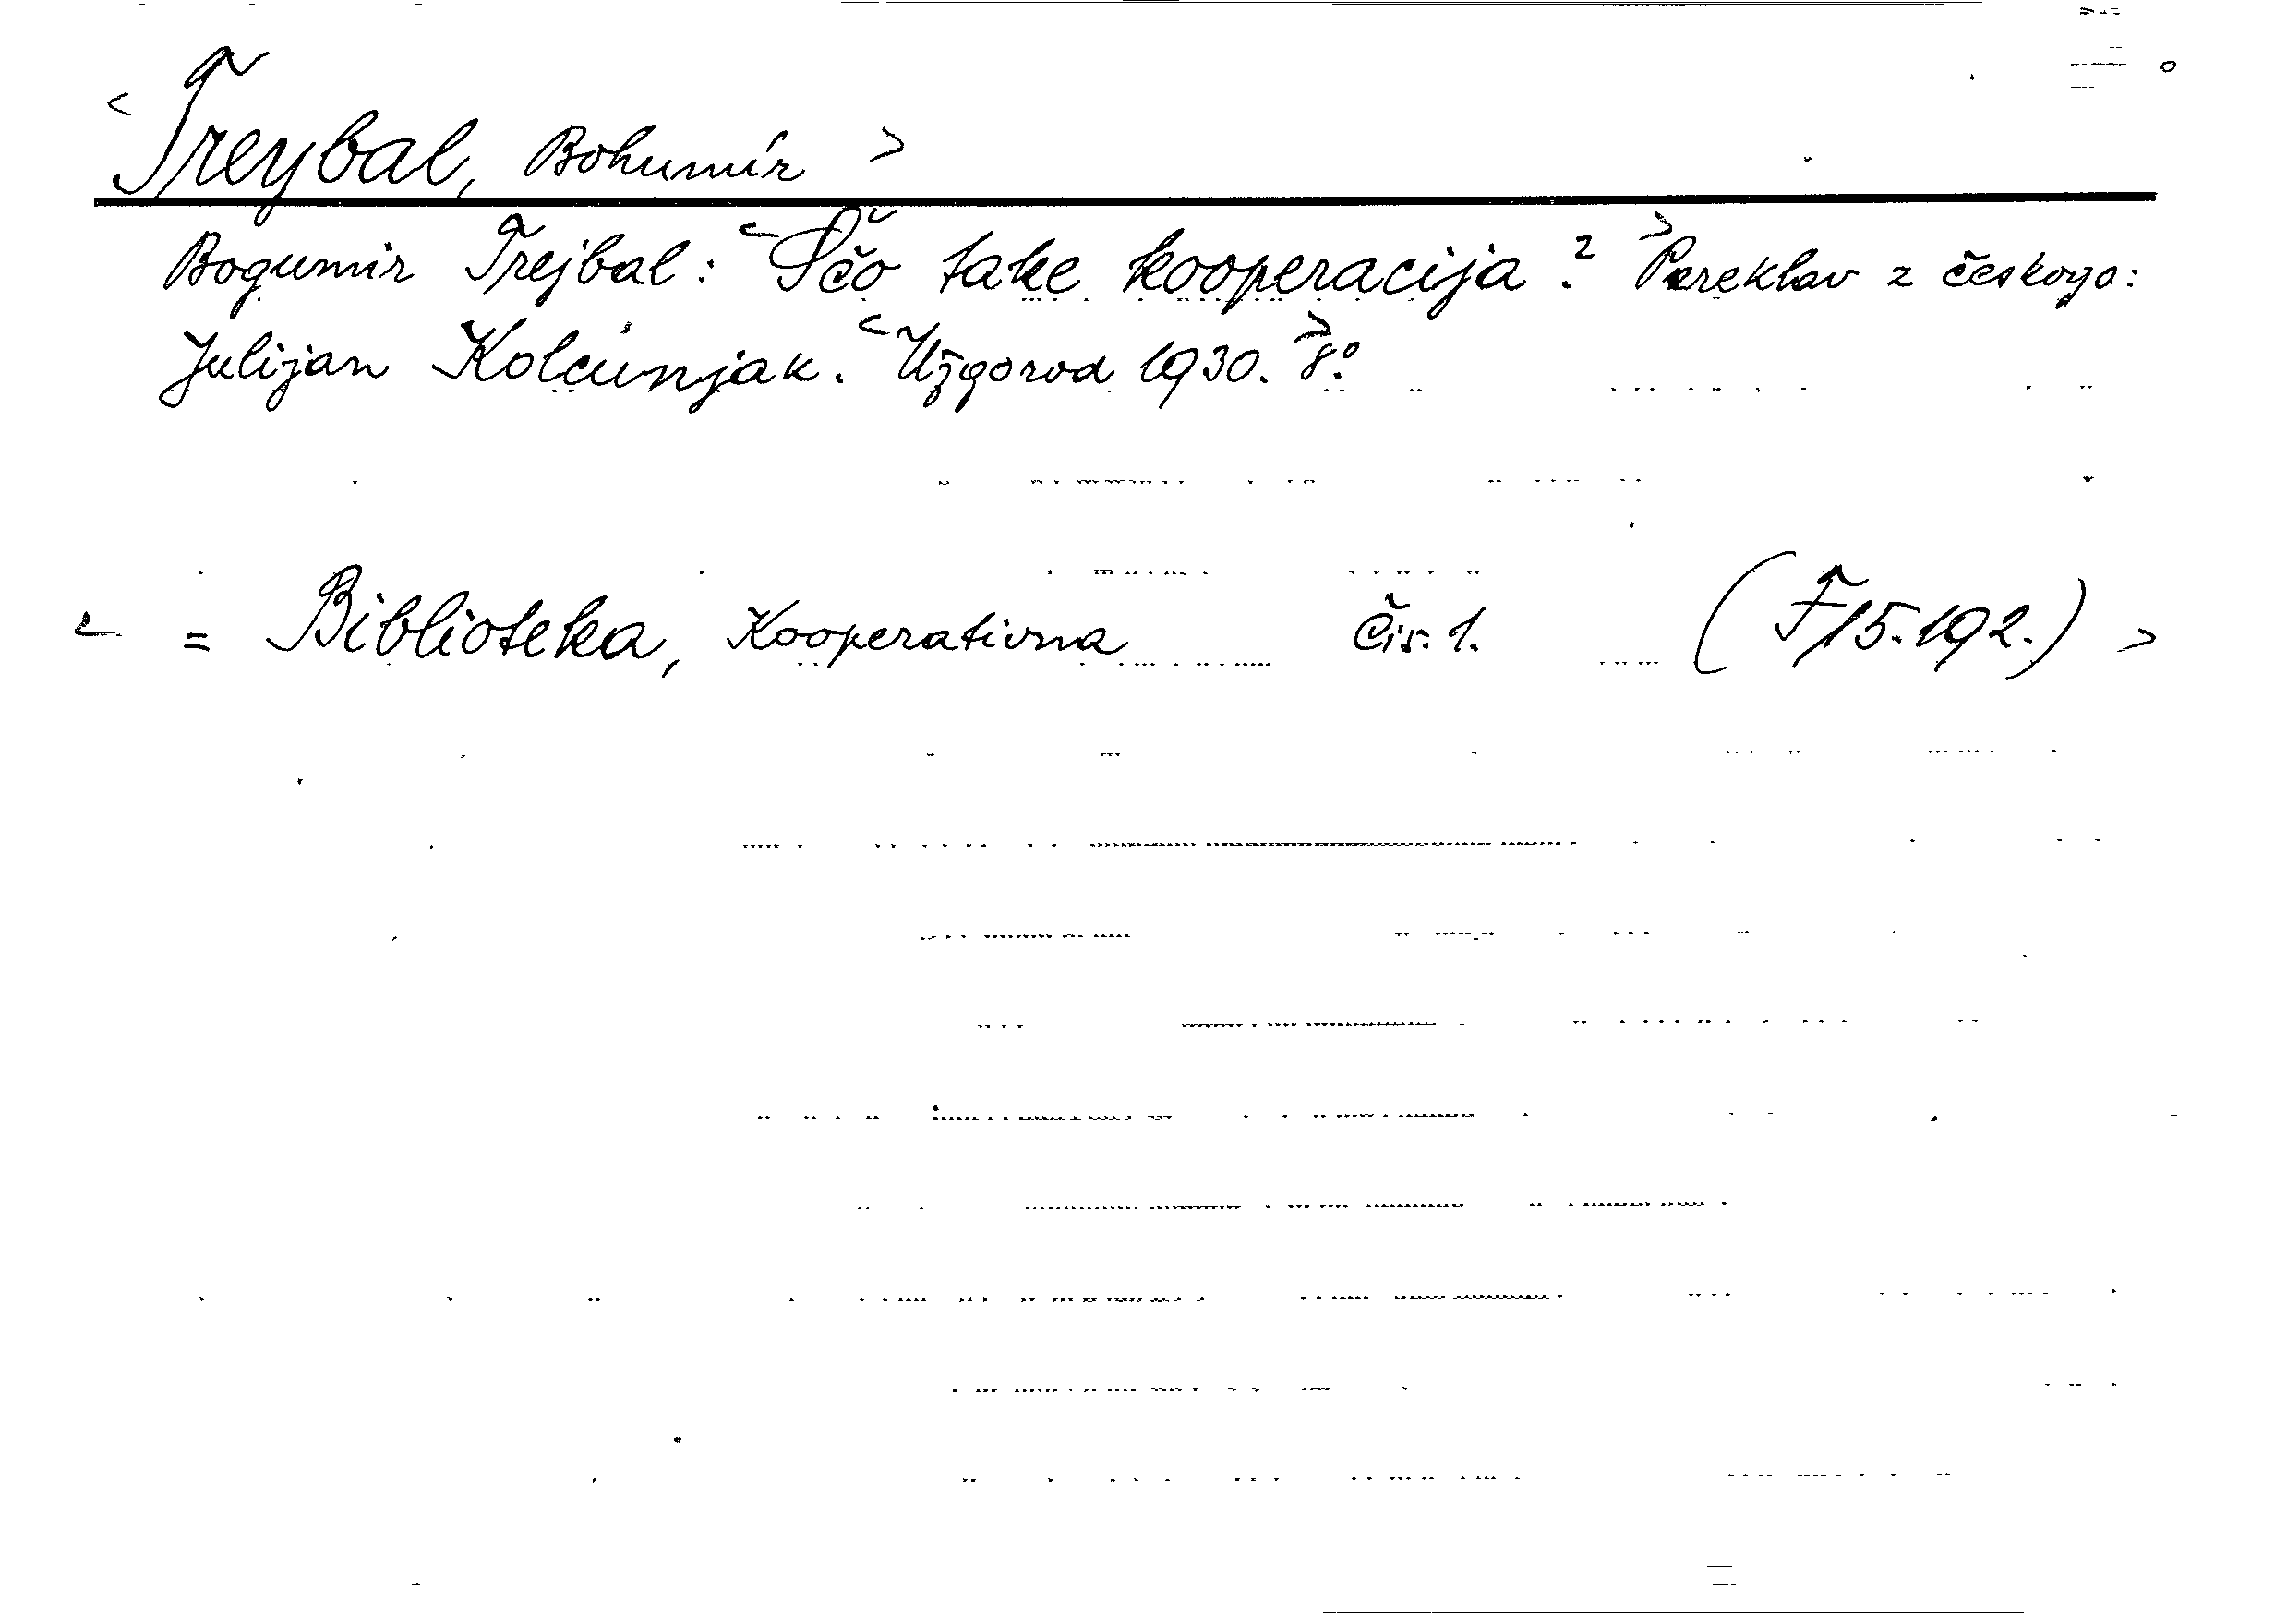 < Treybal, Bohumír >
Bogumir Trejbal: < Ščo take kooperacija? > Pereklav z českogo:
Julijan Kolcunjak. < Užgorod 1930. > 8°.
< = Biblioteka, Kooperativna Čis. 1. (F 15.192.) >